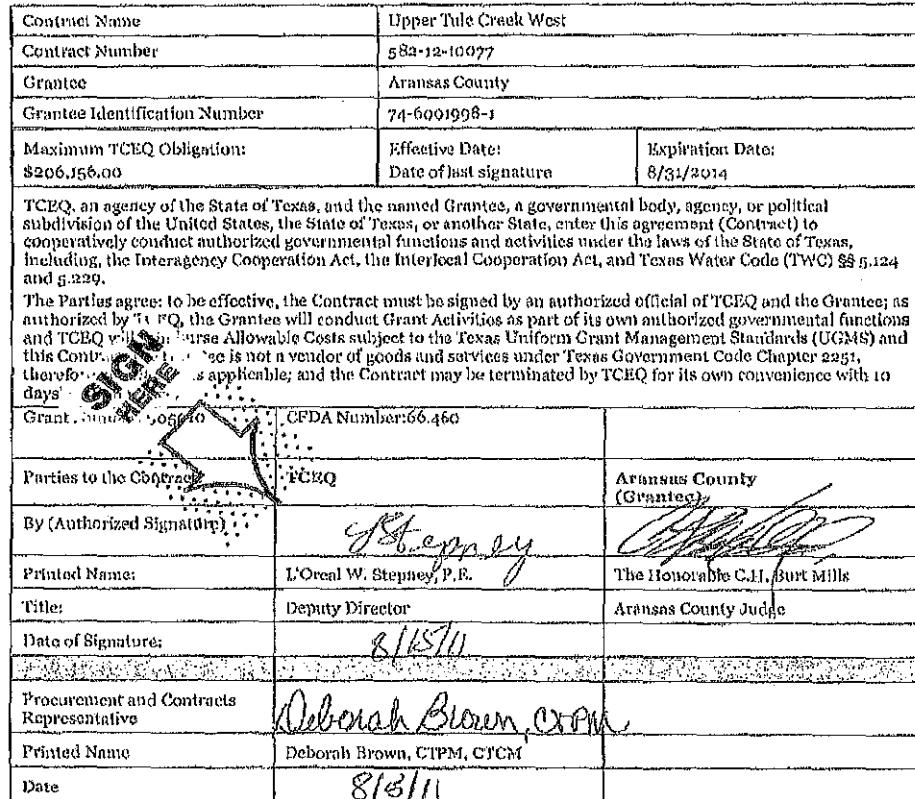 Contract Name Upper Tule Creek West
Contract Number 582-12-10077
Grantee Aransas County
Grantee Identification Number 74-6001998-1
Maximum TCEQ Obligation: Effective Date: Expiration Date:
$206,156.00 Date of last signature 8/31/2014
TCEQ, an agency of the State of Texas, and the named Grantee, a governmental body, agency, or political
subdivision of the United States, the State of Texas, or another State, enter this agreement (Contract) to
cooperatively conduct authorized governmental functions and activities under the laws of the State of Texas,
including, the Interagency Cooperation Act, the Interlocal Cooperation Act, and Texas Water Code (TWC) §§ 5.124
and 5.229.
The Parties agree: to be effective, the Contract must be signed by an authorized official of TCEQ and the Grantee; as
authorized by the Grantee will conduct Grant Activities as part of its own authorized governmental functions
and TCEQ Allowable Costs subject to the Texas Uniform Grant Management Standards (UGMS) and
this is not a vendor of goods and services under Texas Government Code Chapter 2251,
applicable; and the Contract may be terminated by TCEQ for its own convenience with 10
days'
SIGN
HERE
Grant CFDA Number:66.460
Parties to the Contract TCEQ Aransas County
(Grantee)
By (Authorized Signature) Stepney
Printed Name: L'Oreal W. Stepney, P.E. The Honorable C.H. Burt Mills
Title: Deputy Director Aransas County Judge
Date of Signature: 8/15/11
Procurement and Contracts
Representative Deborah Brown, CTPM
Printed Name Deborah Brown, CTPM, CTCM
Date